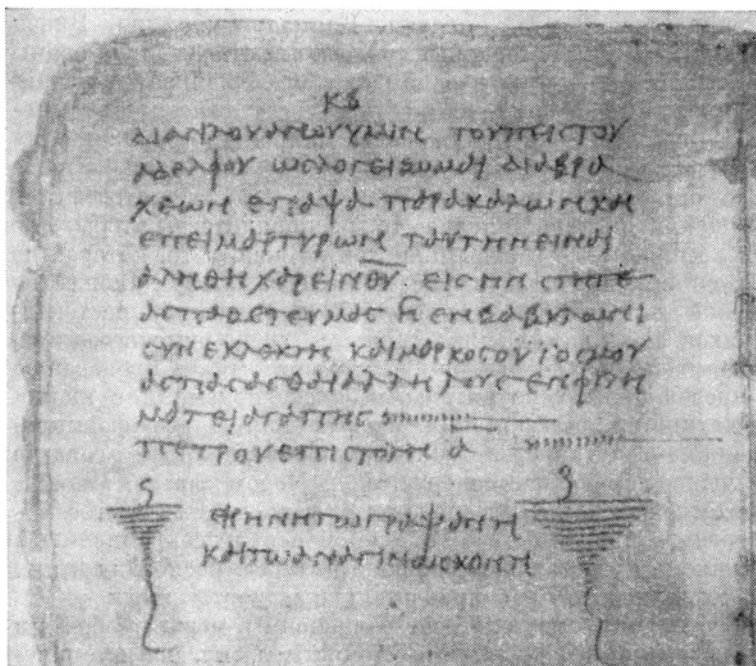 ΔΙΑ ϹΙΛΟΥΑΝΟΥ ΥΜΙΝ ΤΟΥ ΠΕΙϹΤΟΥ
ΑΔΕΛΦΟΥ ΩϹ ΛΟΓΕΙΖΟΜΑΙ ΔΙΑ ΒΡΑ
ΧΕΩΝ ΕΓΡΑΨΑ ΠΑΡΑΚΑΛΩΝ ΚΑΙ
ΕΠΕΙΜΑΡΤΥΡΩΝ ΤΑΥΤΗΝ ΕΙΝΑΙ
ΑΛΗΘΗ ΧΑΡΕΙΝ Θ̅Υ̅ ΕΙϹ ΗΝ ϹΤΗΤΕ
ΑϹΠΑΖΕΤΕ ΥΜΑϹ Η ΕΝ ΒΑΒΥΛΩΝΙ
ϹΥΝΕΚΛΕΚΤΗ ΚΑΙ ΜΑΡΚΟϹ Ο ΥΙΟϹ ΜΟΥ
ΑϹΠΑϹΑϹΘΑΙ ΑΛΛΗΛΟΥϹ ΕΝ ΦΙΛΗ
ΜΑΤΕΙ ΑΓΑΠΗϹ
ΠΕΤΡΟΥ ΕΠΙϹΤΟΛΗ Α
ΕΙΡΗΝΗ ΤΩ ΓΡΑΨΑΝΤΙ
ΚΑΙ ΤΩ ΑΝΑΓΙΝΩϹΚΟΝΤΙ